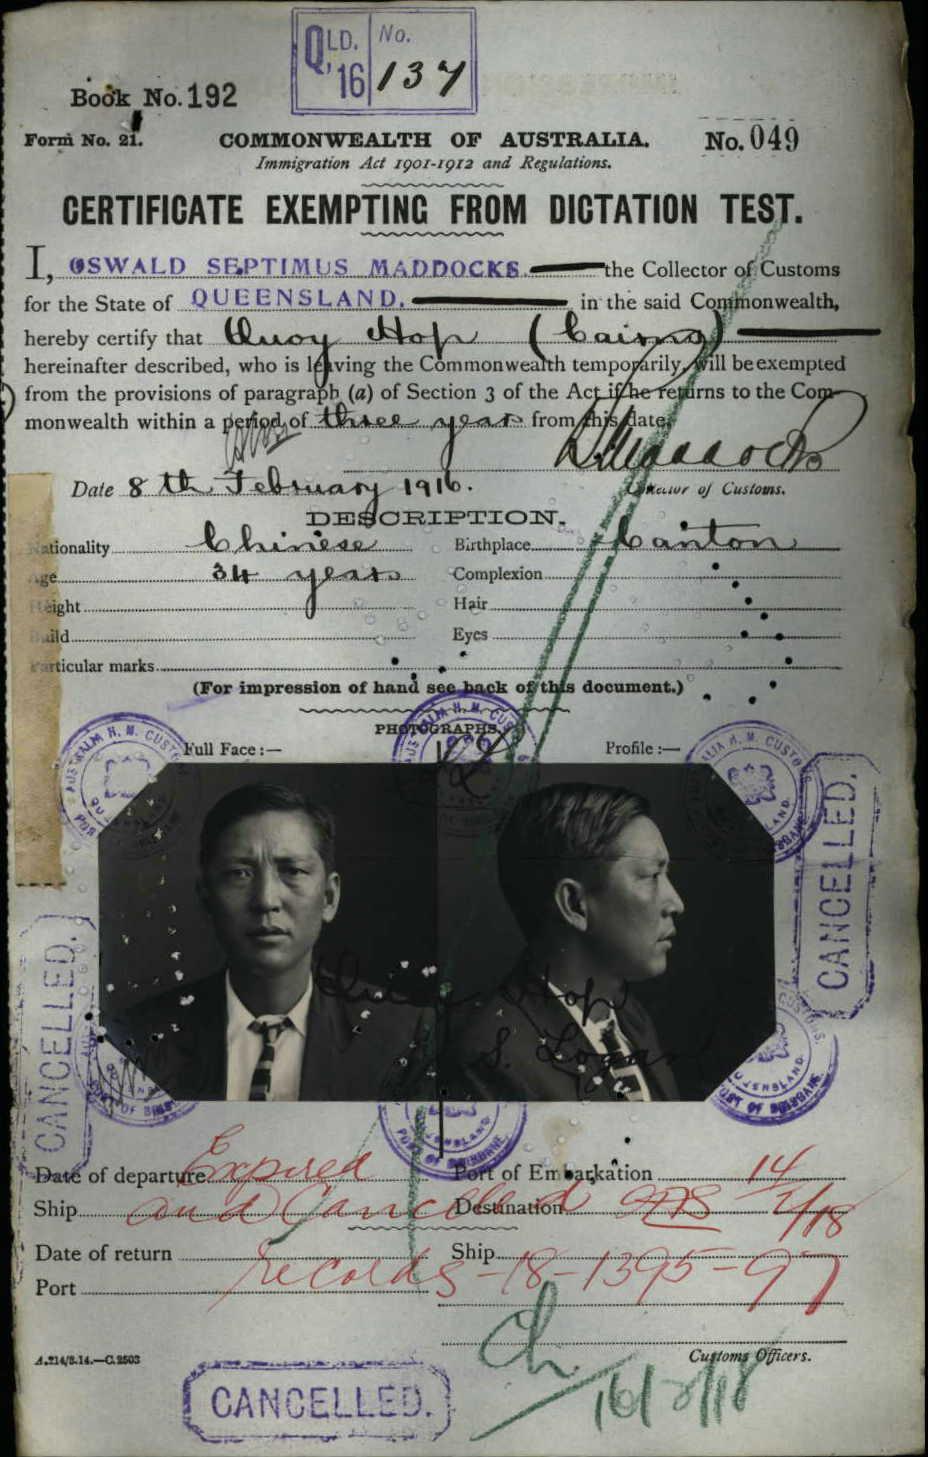 QLD. No.
'16 137
Book No. 192
Form No. 21. COMMONWEALTH OF AUSTRALIA. No. 049
Immigration Act 1901-1912 and Regulations.
CERTIFICATE EXEMPTING FROM DICTATION TEST.
I, OSWALD SEPTIMUS MADDOCKS the Collector of Customs
for the State of QUEENSLAND. in the said Commonwealth,
hereby certify that Quoy Hop (Cairns)
hereinafter described, who is leaving the Commonwealth temporarily, will be exempted
from the provisions of paragraph (a) of Section 3 of the Act if he returns to the Com-
monwealth within a period of three years from this date.
Maddocks
Date 8th February 1916. Collector of Customs.
DESCRIPTION.
Nationality Chinese Birthplace Canton
Age 34 years Complexion
Height Hair
Build Eyes
Particular marks
(For impression of hand see back of this document.)
PHOTOGRAPHS.
Full Face:— Profile:—
CANCELLED.
CANCELLED.
Quoy Hop
S. Logan
Date of departure Expired Port of Embarkation 14/
Ship and Cancelled Destination 2/18
Date of return Ship
records-18-1395-97
Port
Customs Officers.
A.214/3.14.—C.2503
CANCELLED.
16/2/18